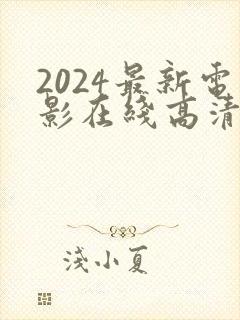 2024最新电
影在线高清
淺小夏